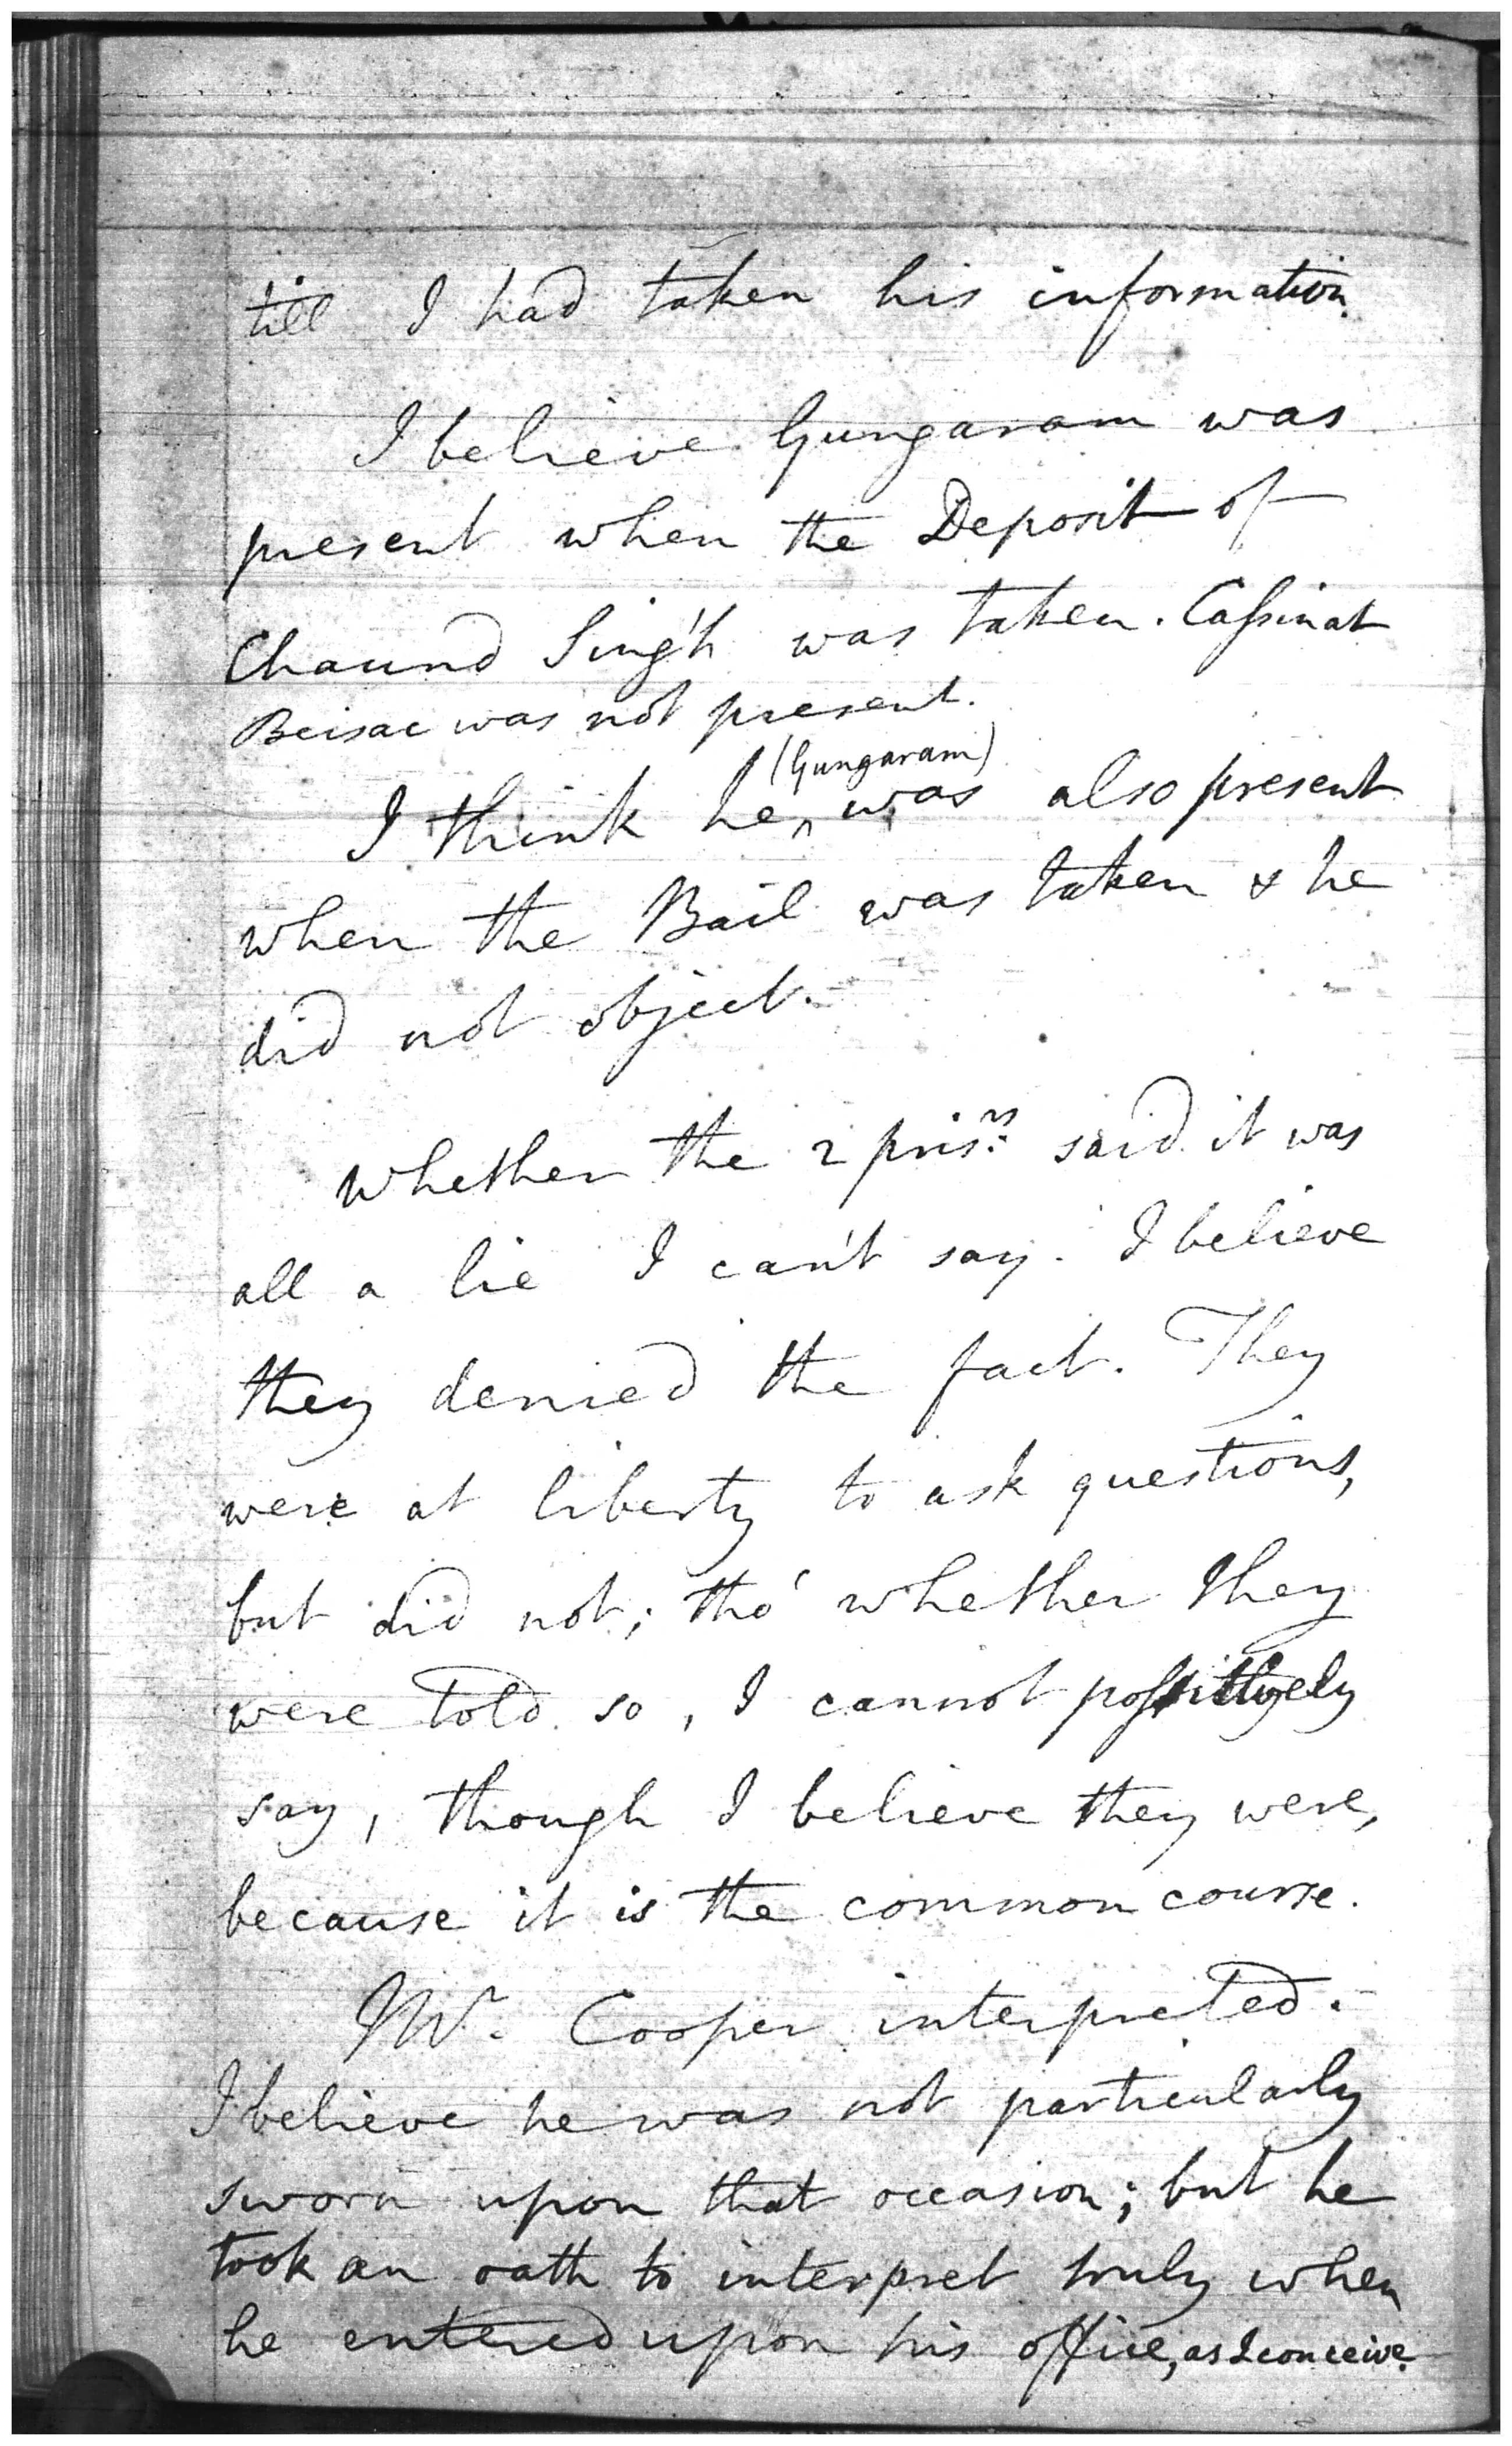 till I had taken his information.
I believe Gungaram was
present when the Deposit of
Chaund Sing'h was taken. Caſsinat
Beisac was not present.
(Gungaram)
I think he ‸ was also present
when the Bail was taken & he
did not object.
Whether the 2 pris.rs said it was
all a lie I can't say. I believe
they denied the fact. They
were at liberty to ask questions,
but did not; tho' whether they
were told so, I cannot positively
say, though I believe they were,
because it is the common course.
Mr. Cooper interpreted.
I believe he was not particularly
sworn upon that occasion; but he
took an oath to interpret truly when
he entered upon his office, as I conceive.